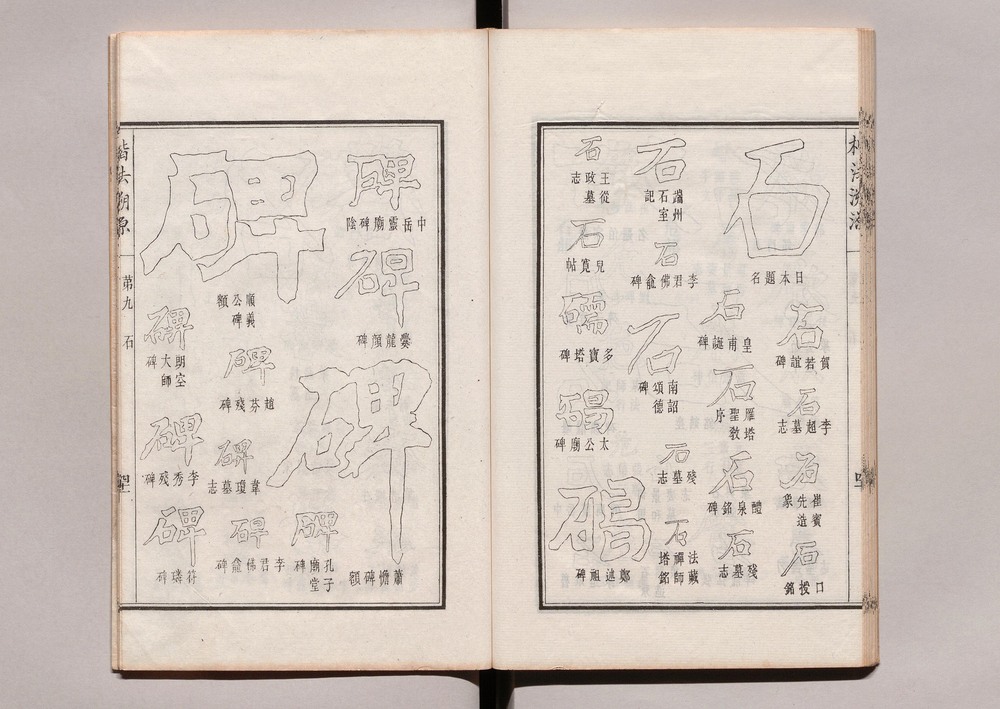 石
日本題名
石
賀若誼碑
石
李超墓志
石
崔賓先造象
石
口授銘
石
皇甫誕碑
石
雁塔聖教序
石
醴泉銘碑
石
殘墓志
石
州石室記
石
李君佛龕碑
石
南詔頌德碑
石
殘墓志
石
法藏禪師塔銘
石
王從政墓志
石
兒寬帖
礝
多寶塔碑
碣
太公廟碑
碣
鄭述祖碑
碑
中岳靈廟碑陰
碑
爨龍顏碑
碑
蕭憺碑額
碑
孔子廟堂碑
碑
順義公碑額
碑
趙芬殘碑
碑
韋瓊墓志
碑
李君佛龕碑
碑
朗空大師碑
碑
李秀殘碑
碑
符璘碑
楷法溯源
第九
石